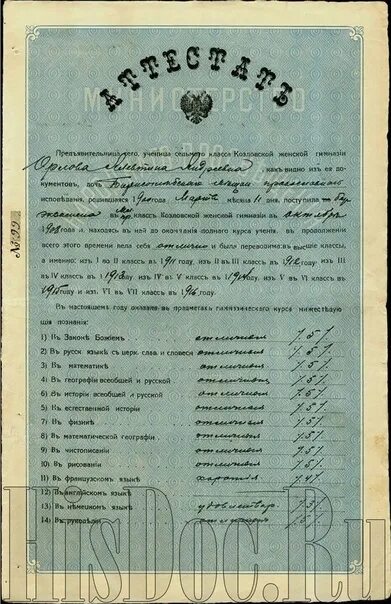 АТТЕСТАТЪ
МИНИСТЕРСТВО
Предъявительница сего, ученица седьмого класса Козловской женской гимназіи
Орлова, какъ видно изъ ея до-
кументовъ, дочь
исповѣданія, родившаяся Марта мѣсяца 11 дня, поступила
экзамена въ классъ Козловской женской гимназіи въ октябрѣ
1908 года и, находясь въ ней до окончанія полнаго курса ученія, въ продолженіи
всего этого времени вела себя отлично и была переводима въ высшіе классы,
а именно: изъ I во II классъ въ 1911 году, изъ II въ III классъ въ 1912 году, изъ III
въ IV классъ въ 1913 году, изъ IV въ V классъ въ 1914 году, изъ V въ VI классъ въ
1915 году и изъ VI въ VII классъ въ 1916 году.
Въ настоящемъ году оказала въ предметахъ гимназическаго курса нижеслѣдую-
щія познанія:
1) Въ Законѣ Божіемъ отличныя /5/
2) Въ русск языкѣ съ церк. слав. и словесн отличныя /5/
3) Въ математикѣ отличныя /5/
4) Въ географіи всеобщей и русской отличныя /5/
6) Въ исторіи всеобщей и русской отличныя /5/
5) Въ естественной исторіи отличныя /5/
7) Въ физикѣ отличныя /5/
8) Въ математической географіи отличныя /5/
9) Въ чистописаніи отличныя /5/
10) Въ рисованіи отличныя /5/
11) Въ французскомъ языкѣ хорошія /4/
12) Въ англійскомъ языкѣ
13) Въ нѣмецкомъ языкѣ
14) Въ рукодѣліи отличныя /5/
HisDoc.Ru